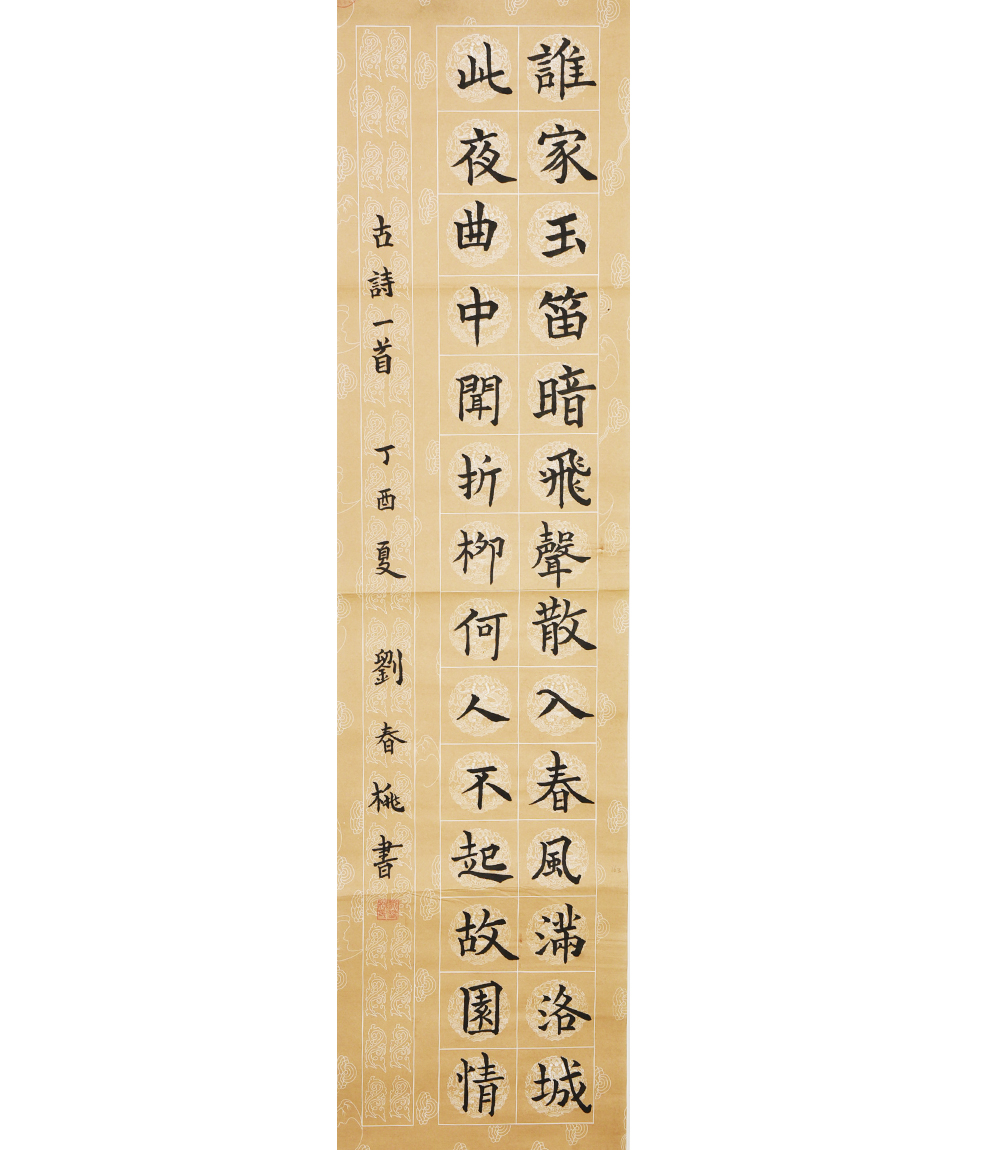 誰家玉笛暗飛聲散入春風滿洛城
此夜曲中聞折柳何人不起故園情
古詩一首 丁酉夏 劉春桃書